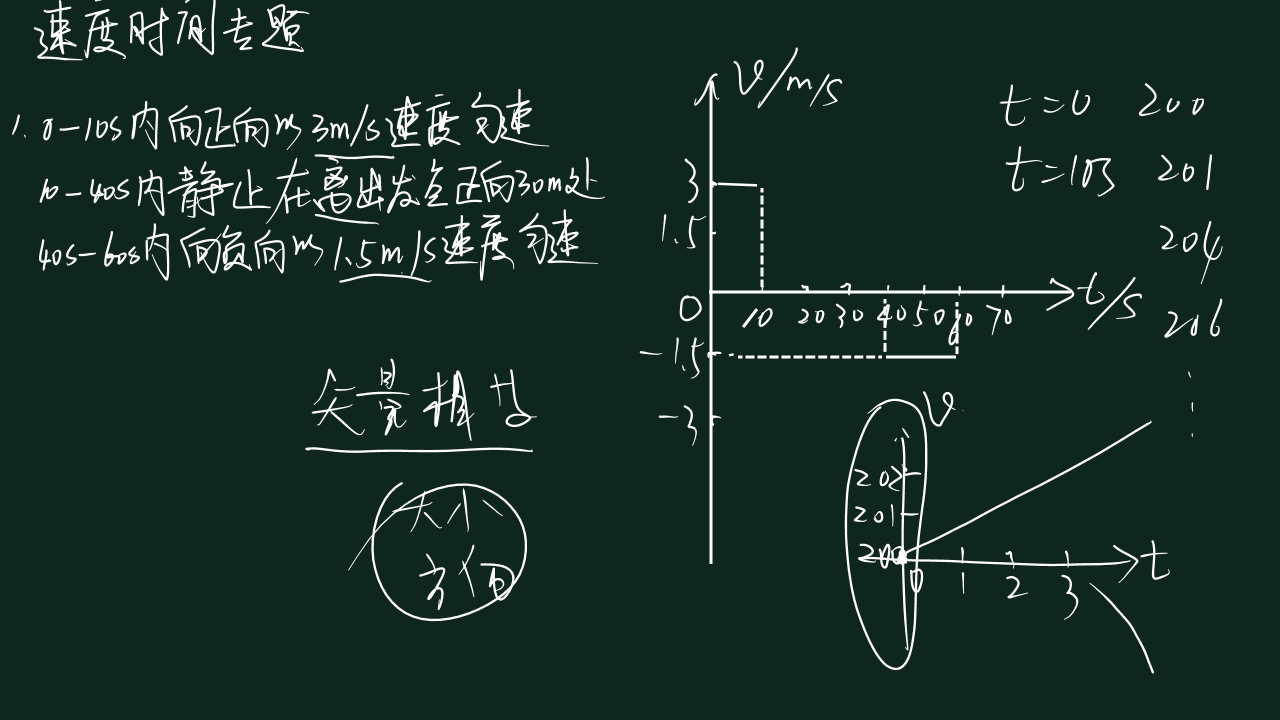 速度时间专题
1. 0-10s内向正向以3m/s速度匀速
10-40s内静止在离出发点正向30m处
40s-60s内向负向以1.5m/s速度匀速
矢量相等
大小
方向
v/m/s
3
1.5
0
10 20 30 40 50 60 70
t/s
-1.5
-3
t=0 200
t=1s 201
204
206
v
202
201
200
0 1 2 3
t